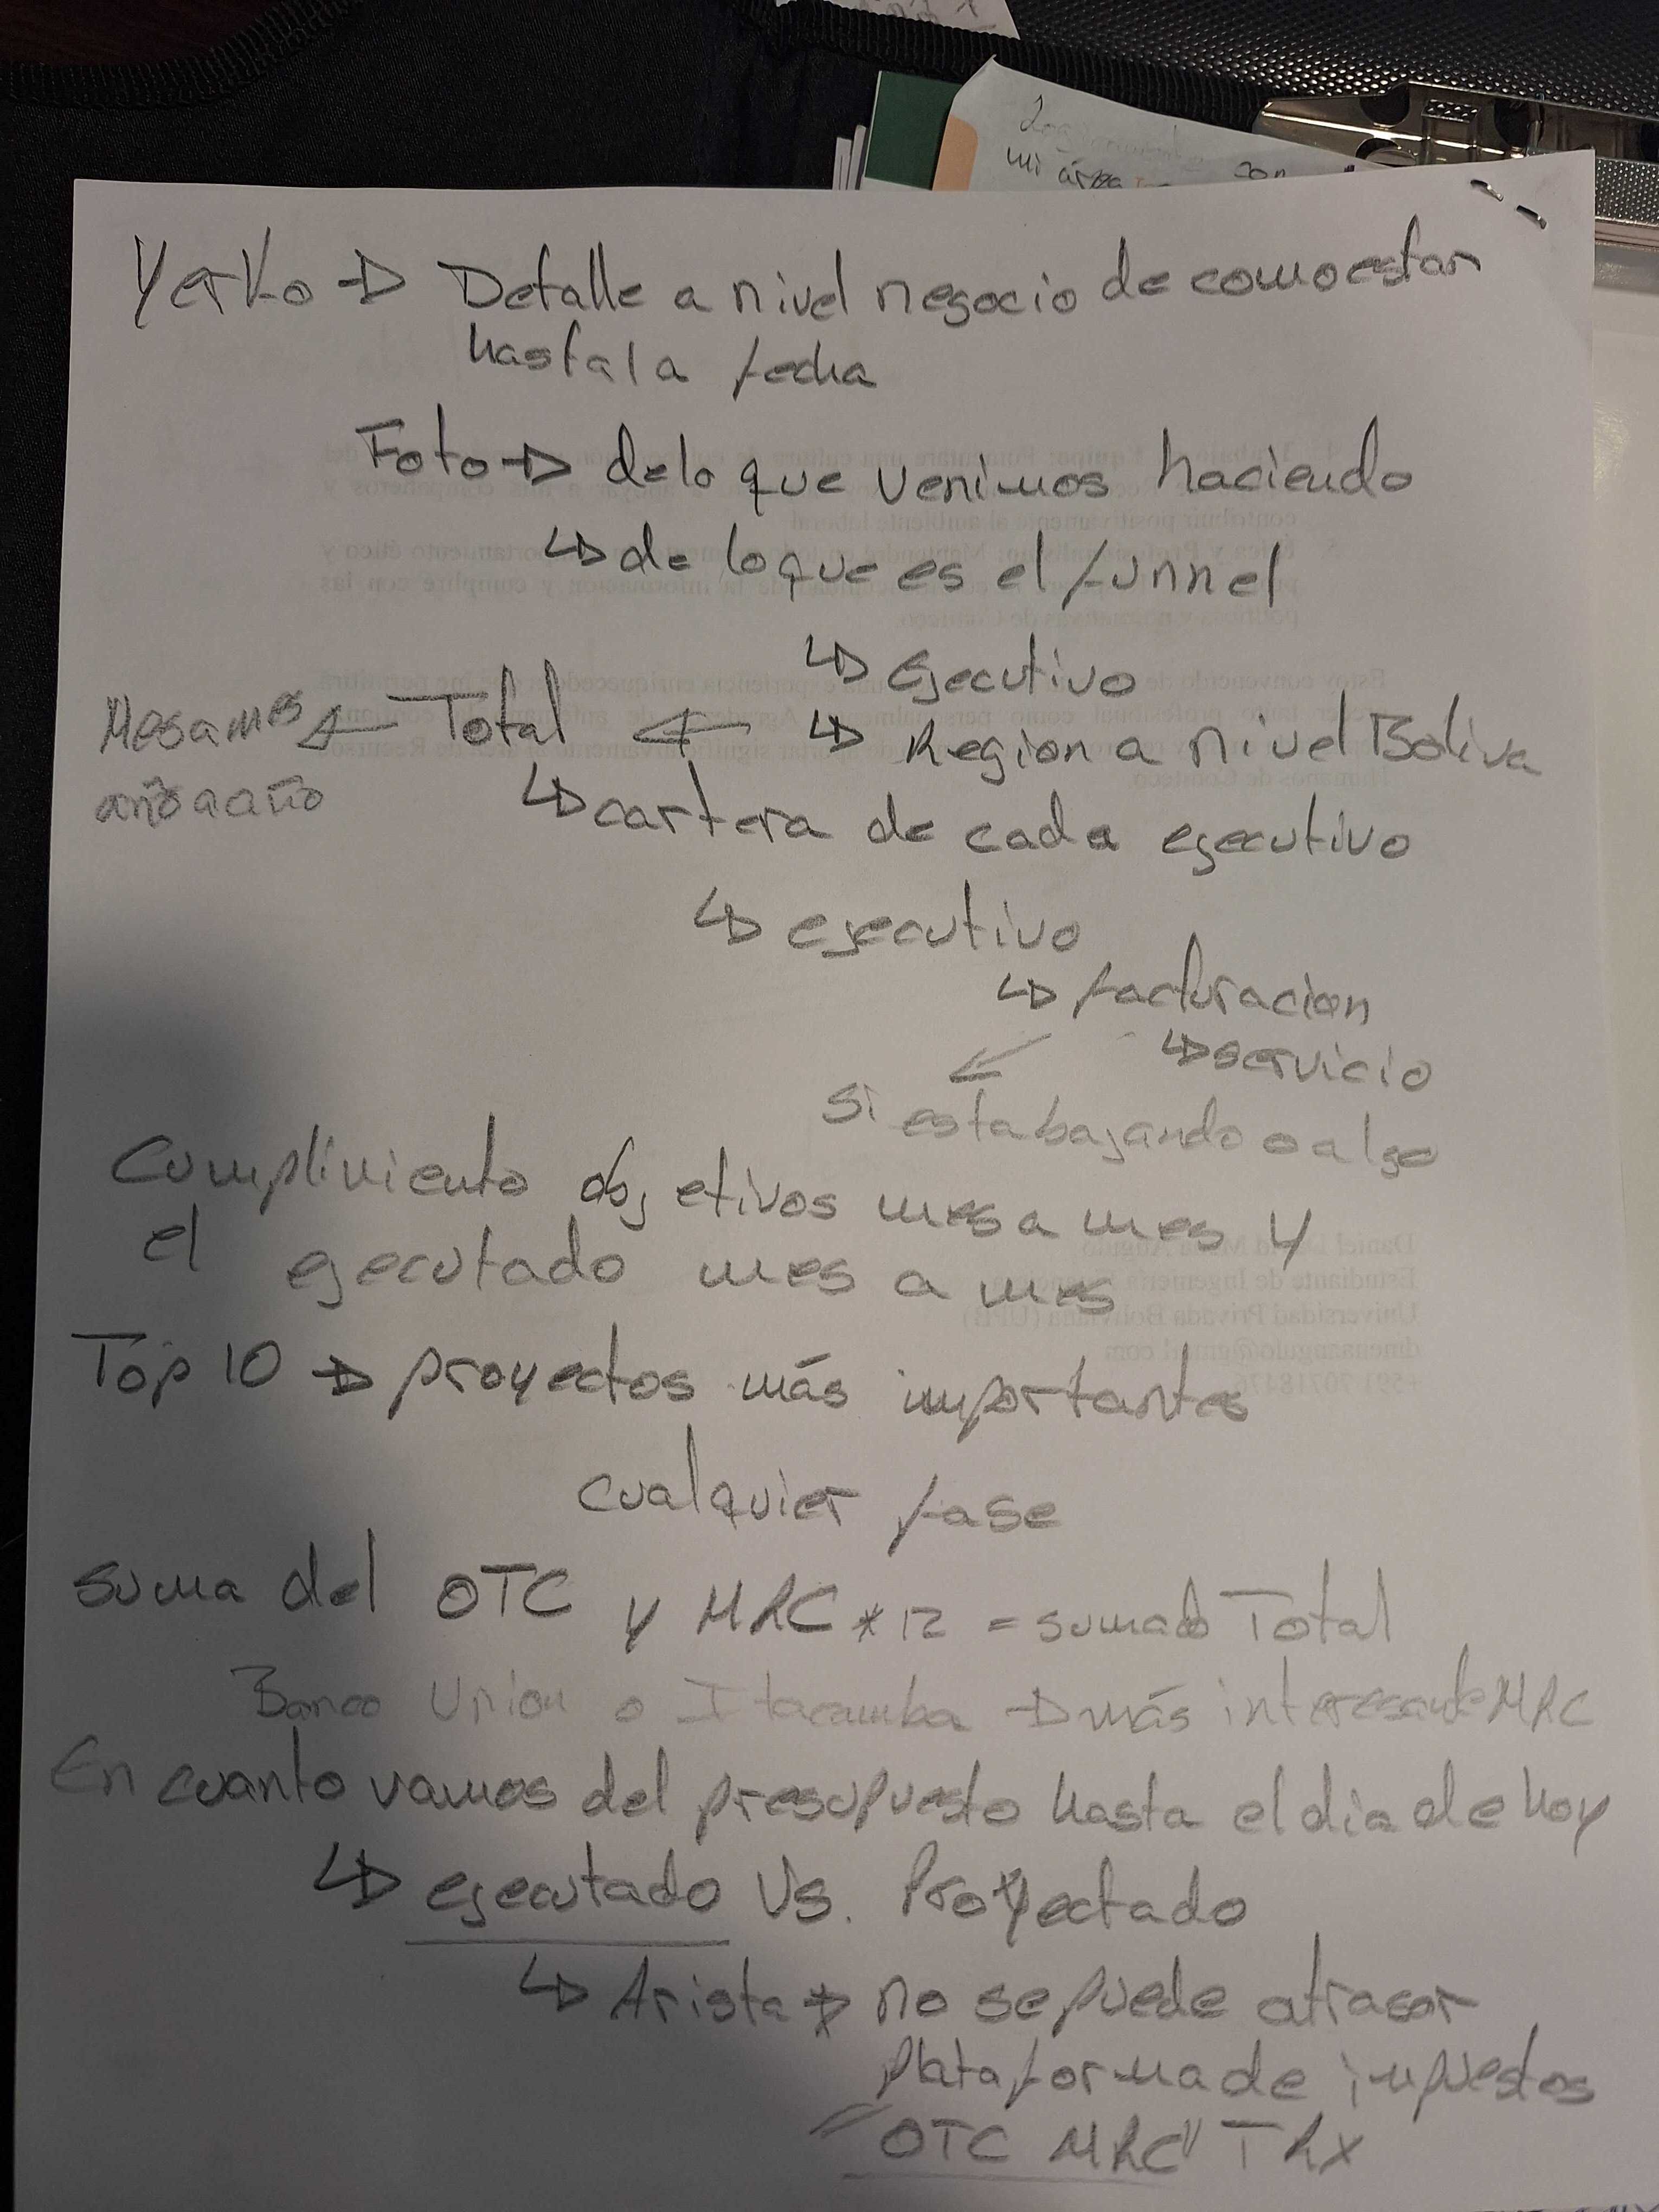 mi área con
Yerko → Detalle a nivel negocio de como estan
hasta la fecha
Foto → de lo que venimos haciendo
↳ de lo que es el funnel
↳ ejecutivo
Mes a mes ← Total ← ↳ Region a nivel Boliva
año a año
↳ cartera de cada ejecutivo
↳ ejecutivo
↳ facturacion
↳ servicio
si esta bajando o algo
Cumplimiento objetivos mes a mes y
el ejecutado mes a mes
Top 10 → proyectos más importantes
cualquier fase
suma del OTC y MRC * 12 = sumado Total
Banco Union o Itacamba → más interesante MRC
En cuanto vamos del presupuesto hasta el dia de hoy
↳ ejecutado Vs. Proyectado
↳ Arista → no se puede atrasar
Plataforma de impuestos
"OTC MRC" TRX